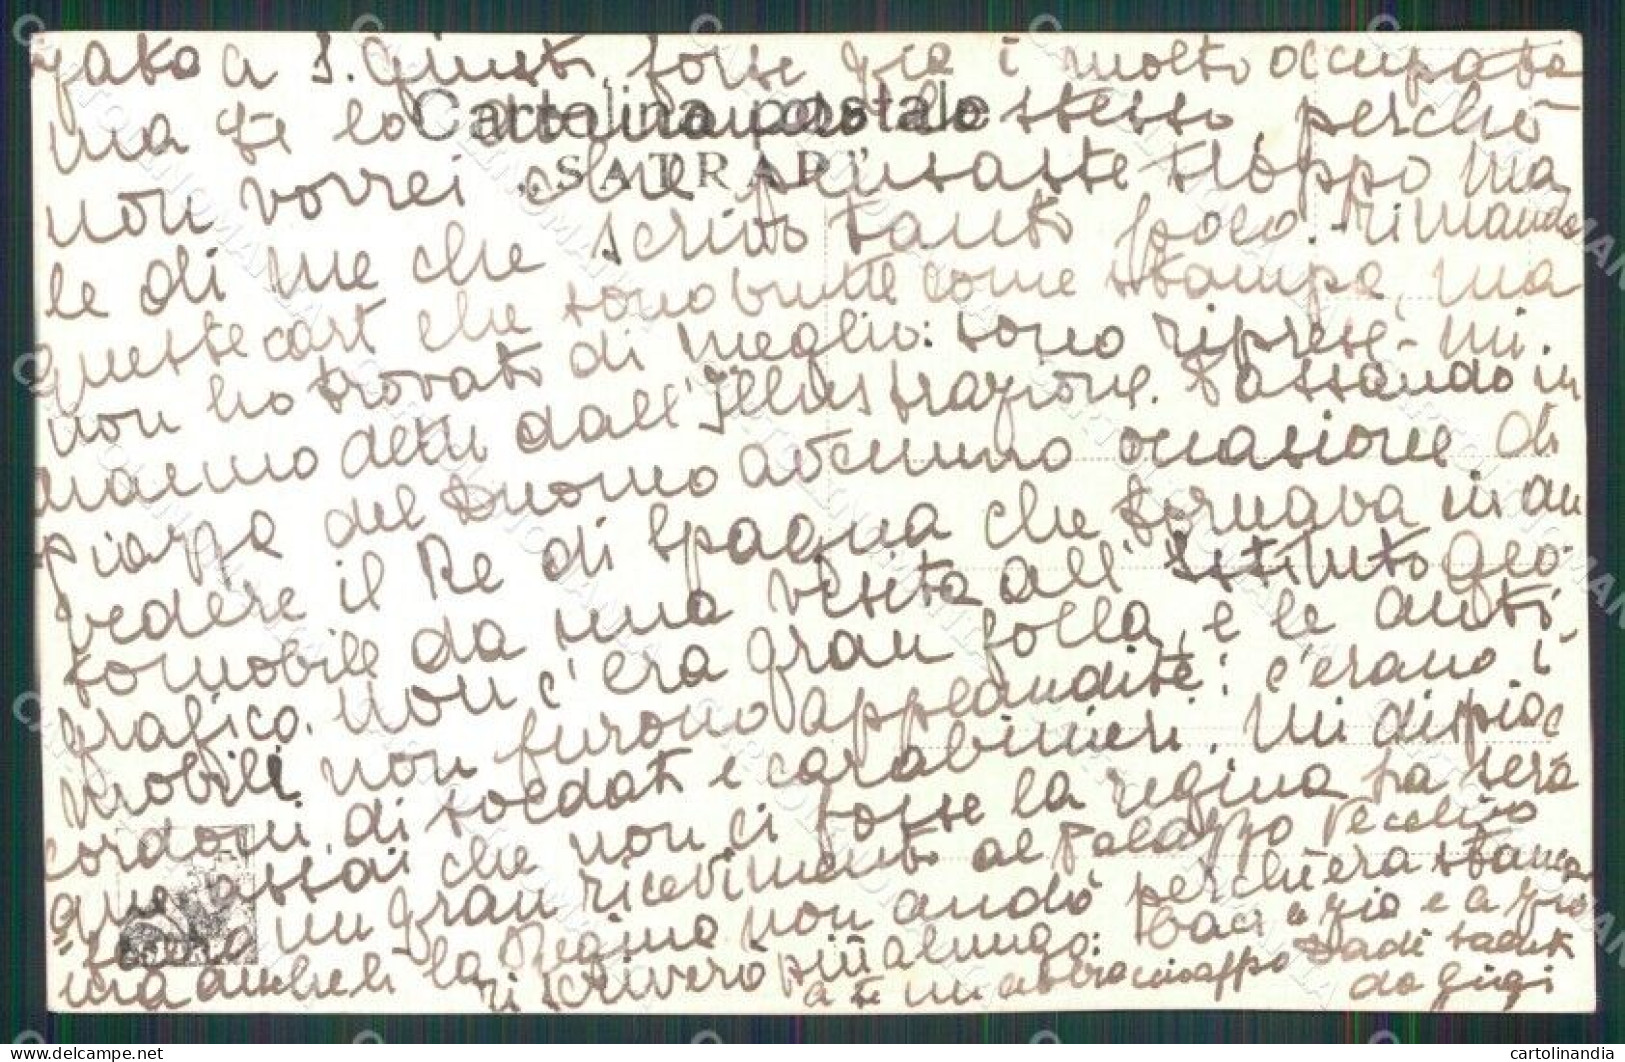 gato a S. Giusto, forse già è molto occupata
Cartolina postale
ma te lo domando lo stesso, perchè
„SATRAP"
non vorrei che pensaste troppo ma
le di me che scrivo tanto poco. rimando
queste cart che sono brutte come stampa, ma
non ho trovato di meglio: sono riprese - mi.
hanno detto dall'Illustrazione. Passando in
piazza del Duomo avemmo occasione di
vedere il Re di Spagna che tornava in au
tomobile da una visita all'Istituto Geo
grafico. non c'era gran folla, e le auto
mobili non furono applaudite: c'erano i
cordoni di soldati e carabinieri. Mi dispiac
que assai che non ci fosse la regina. Ha sera
un gran ricevimento al Palazzo Vecchio
ma anche lì la Regina non andò perchè era stanca
ti scriverò più a lungo. Baci a zia e a zio
a te un abbraccio saluti
da Gigi
cartolinandia